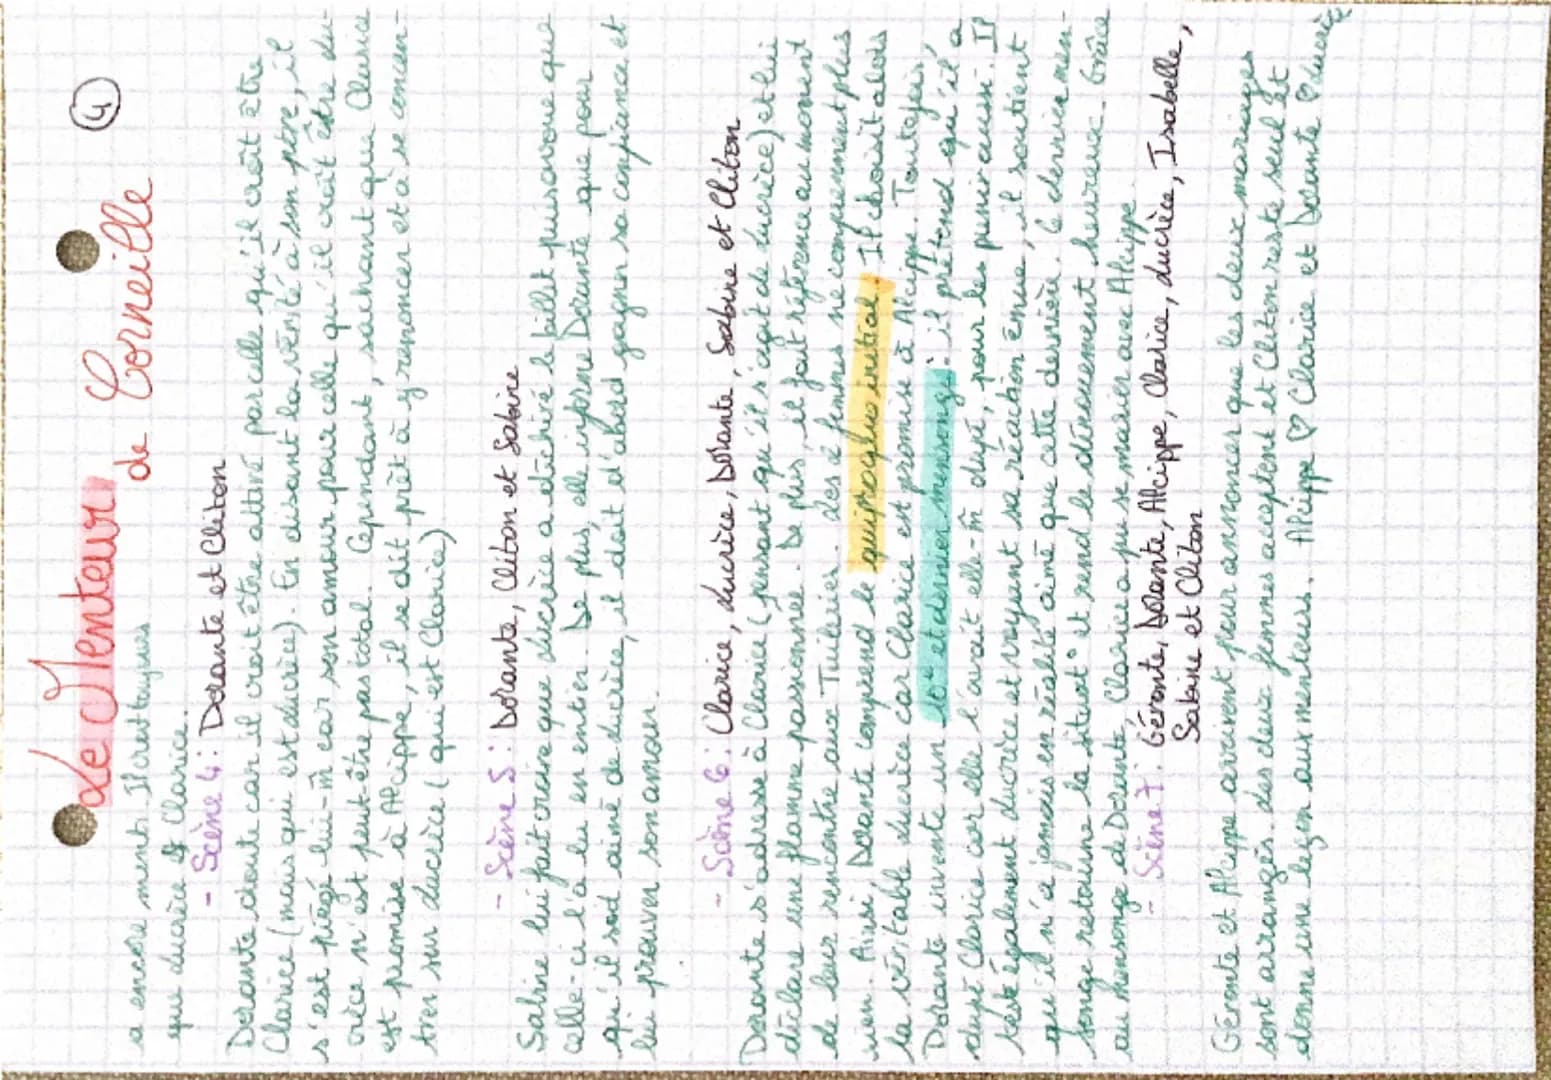 Le Menteur
de Corneille
4
a encore menti. Il croit toujours
que Lucrèce & Clarice.
- Scène 4 : Dorante et Cliton
Dorante doute car il croit être attiré par celle qu'il croit être
Clarice (mais qui est Lucrèce). En disant la vérité à son père, il
s'est piégé lui-m̂ car son amour pour celle qu'il croit être Lu-
crèce n'est peut-être pas total. Cependant, sachant que Clarice
est promise à Alcippe, il se dit prêt à y renoncer et à se concen-
trer sur Lucrèce (qui est Clarice)
- Scène 5 : Dorante, Cliton et Sabine
Sabine lui fait croire que Lucrèce a déchiré le billet puis avoue que
celle-ci l'a lu en entier. De plus, elle informe Dorante que pour
qu'il soit aimé de Lucrèce, il doit d'abord gagner sa confiance et
lui prouver son amour.
- Scène 6 : Clarice, Lucrèce, Dorante, Sabine et Cliton
Dorante s'adresse à Clarice (pensant qu'il s'agit de Lucrèce) et lui
déclare une flamme passionnée. De plus, il fait référence au moment
de leur rencontre aux Tuileries. Les 2 femmes ne comprennent plus
rien. Ainsi, Dorante comprend le quiproquo initial. Il choisit alors
la véritable Lucrèce car Clarice est promise à Alcippe. Toutefois,
Dorante invente un 10e et dernier mensonge : il prétend qu'il a
dupé Clarice car elle l'avait elle-m̂ dupé, pour les punir aussi. Il
teste également Lucrèce et voyant sa réaction émue, il soutient
qu'il n'a jamais en réalité aimé que cette dernière. Ce dernier men-
songe retourne la situat° et rend le dénouement heureux. Grâce
au mensonge de Dorante, Clarice a pu se marier avec Alcippe.
- Scène 7 : Géronte, Dorante, Alcippe, Clarice, Lucrèce, Isabelle,
Sabine et Cliton
Géronte et Alcippe arrivent pour annoncer que les deux mariages
sont arrangés. Les deux femmes acceptent et Cliton reste seul et
donne une leçon aux menteurs. Alcippe ♡ Clarice et Dorante ♡ Lucrèce